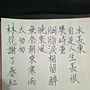 林花謝了春紅
太匆匆
無奈朝來寒雨
晚來風
胭脂淚相留醉
幾時重
自是人生長恨
水長東